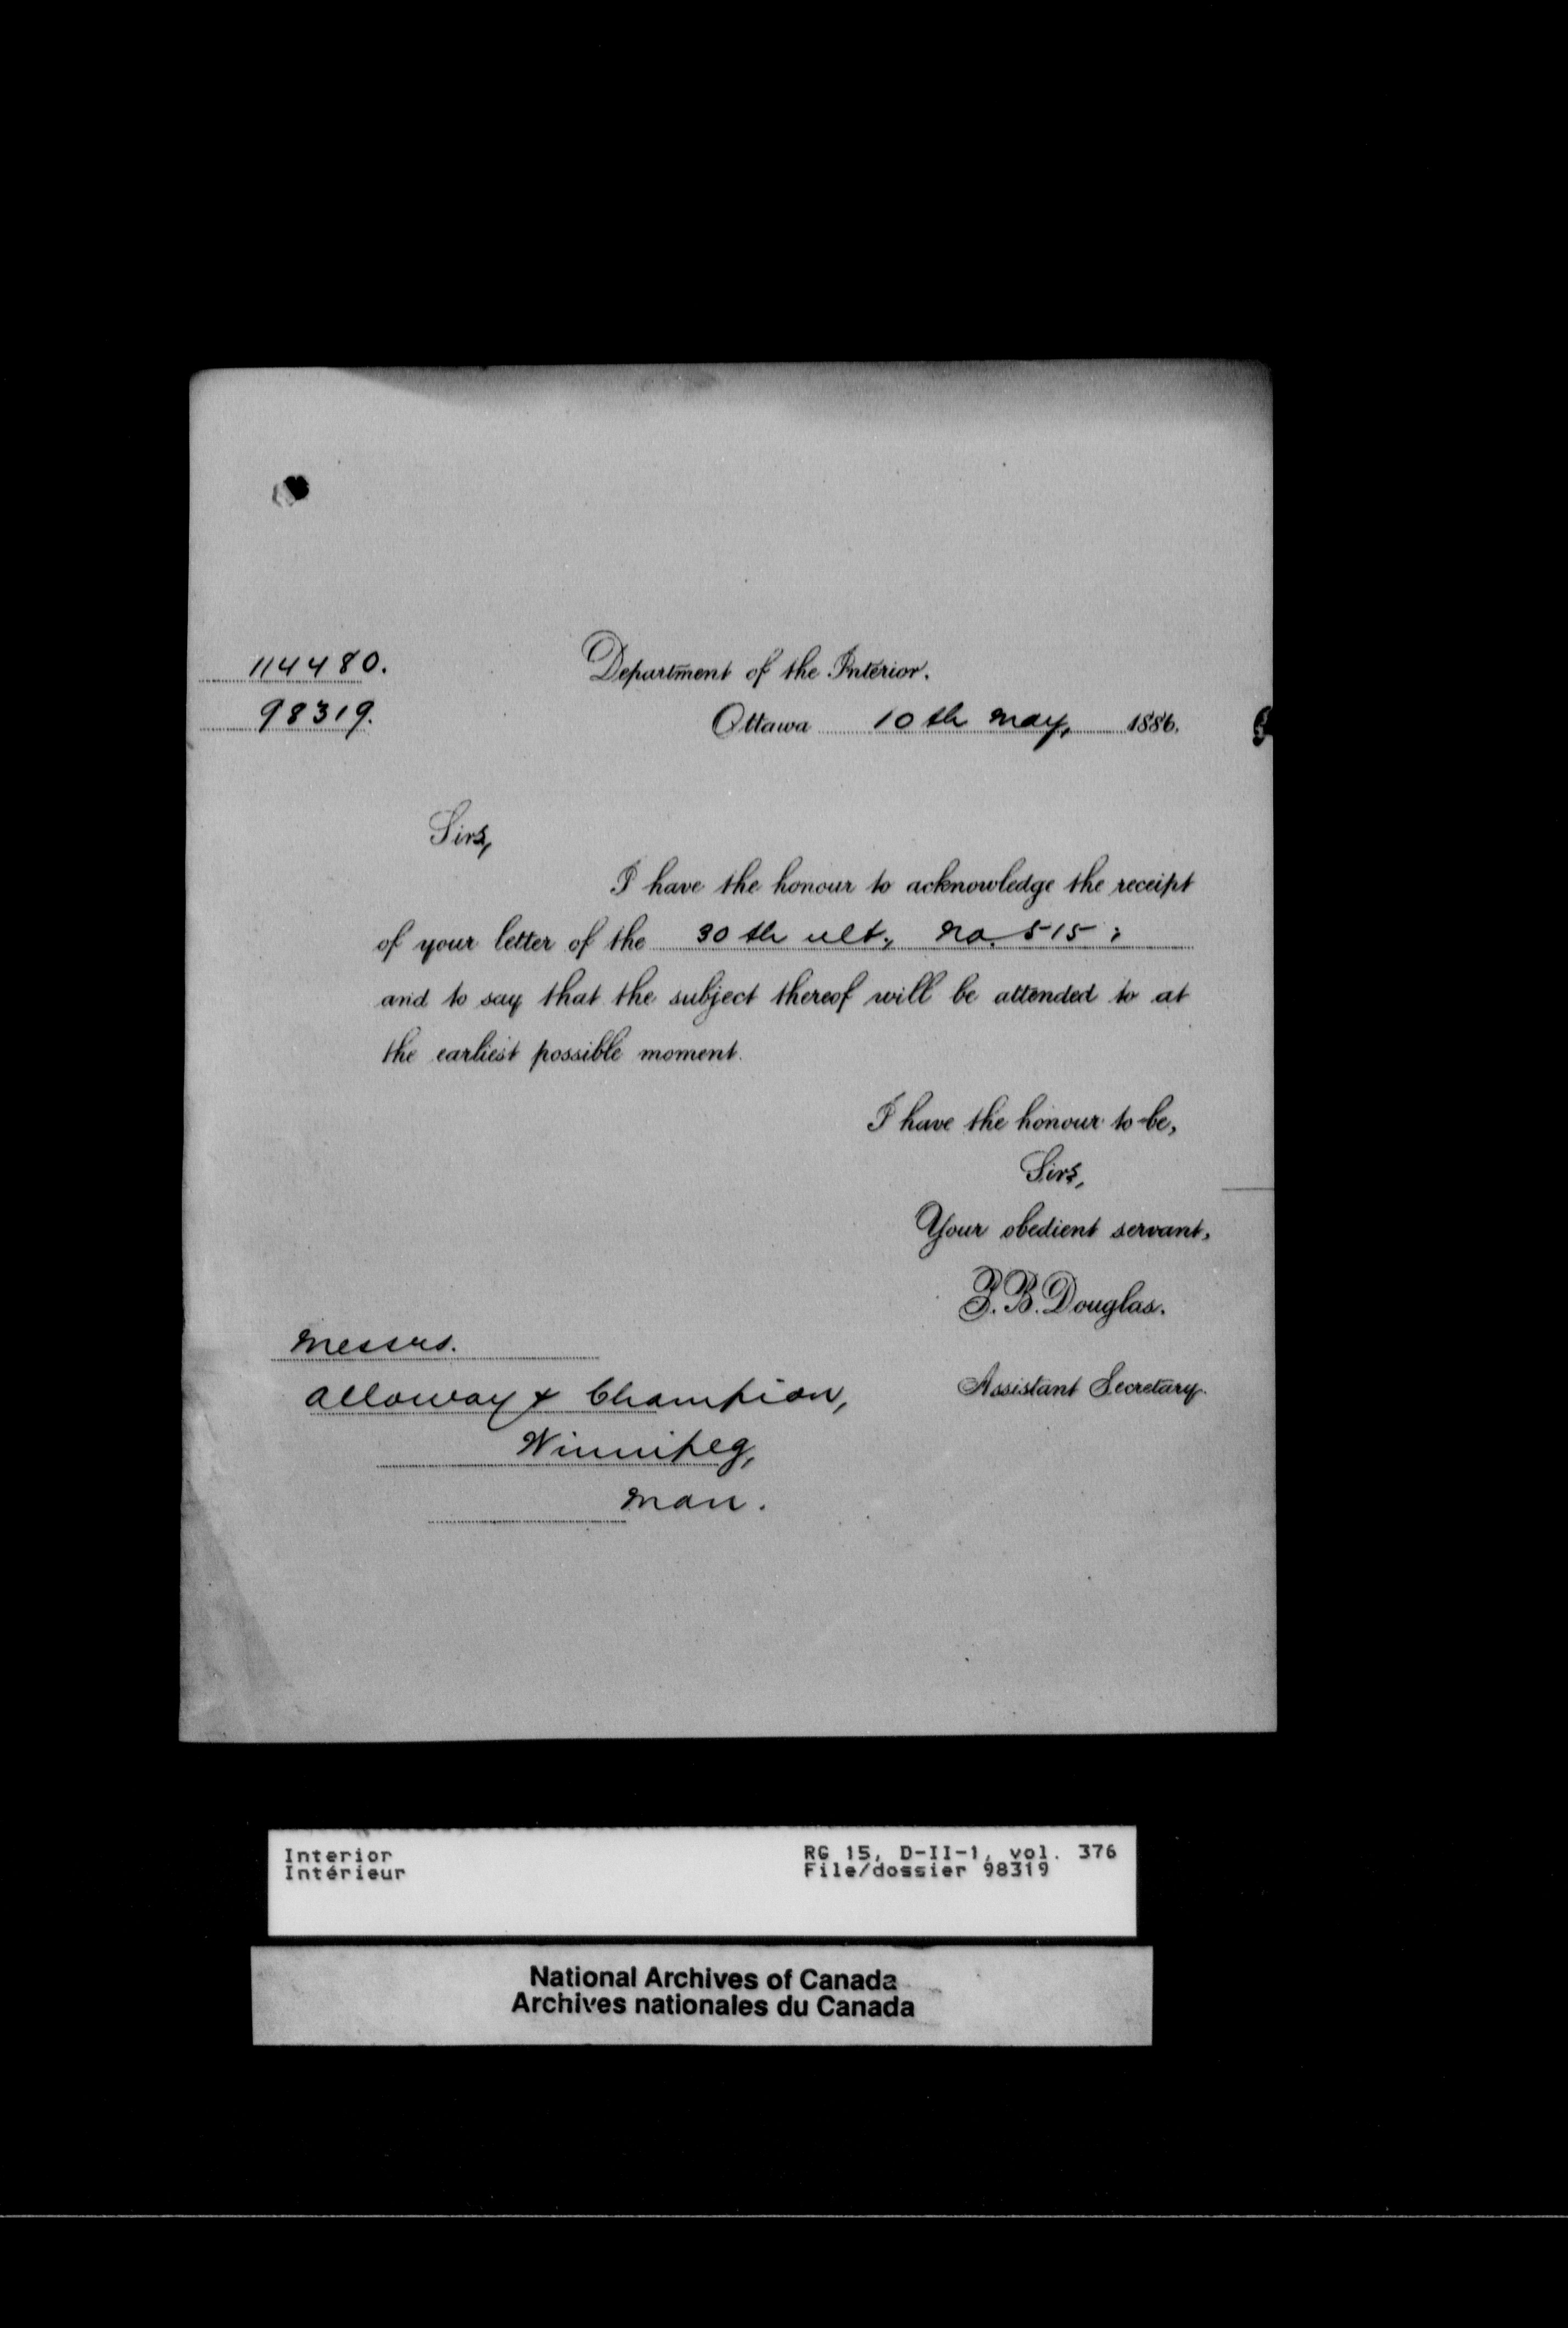 114480.
98319.
Department of the Interior.
Ottawa 10th May, 1886.
Sirs,
I have the honour to acknowledge the receipt
of your letter of the 30th ult., No. 515;
and to say that the subject thereof will be attended to at
the earliest possible moment.
I have the honour to be,
Sirs,
Your obedient servant,
P. B. Douglas.
Assistant Secretary.
Messrs.
Alloway & Champion,
Winnipeg,
Man.
Interior
Intérieur
RG 15, D-II-1, vol. 376
File/dossier 98319
National Archives of Canada
Archives nationales du Canada